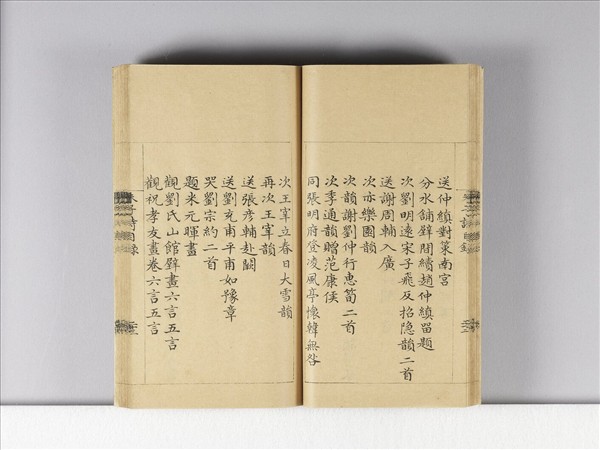 送仲縝對策南宮
分水鋪壁間續趙仲縝留題
次劉明遠宋子飛反招隐韻二首
送謝周輔入廣
次亦樂園韻
次韻謝劉仲行惠筍二首
次季通韻贈范康侯
同張明府登凌風亭懷韓無咎
次王宰立春日大雪韻
再次王宰韻
送張彥輔赴闕
送劉充甫平甫如豫章
哭劉宗約二首
題米元暉畫
觀劉氏山館壁畫六言五言
觀祝孝友畫卷六言五言